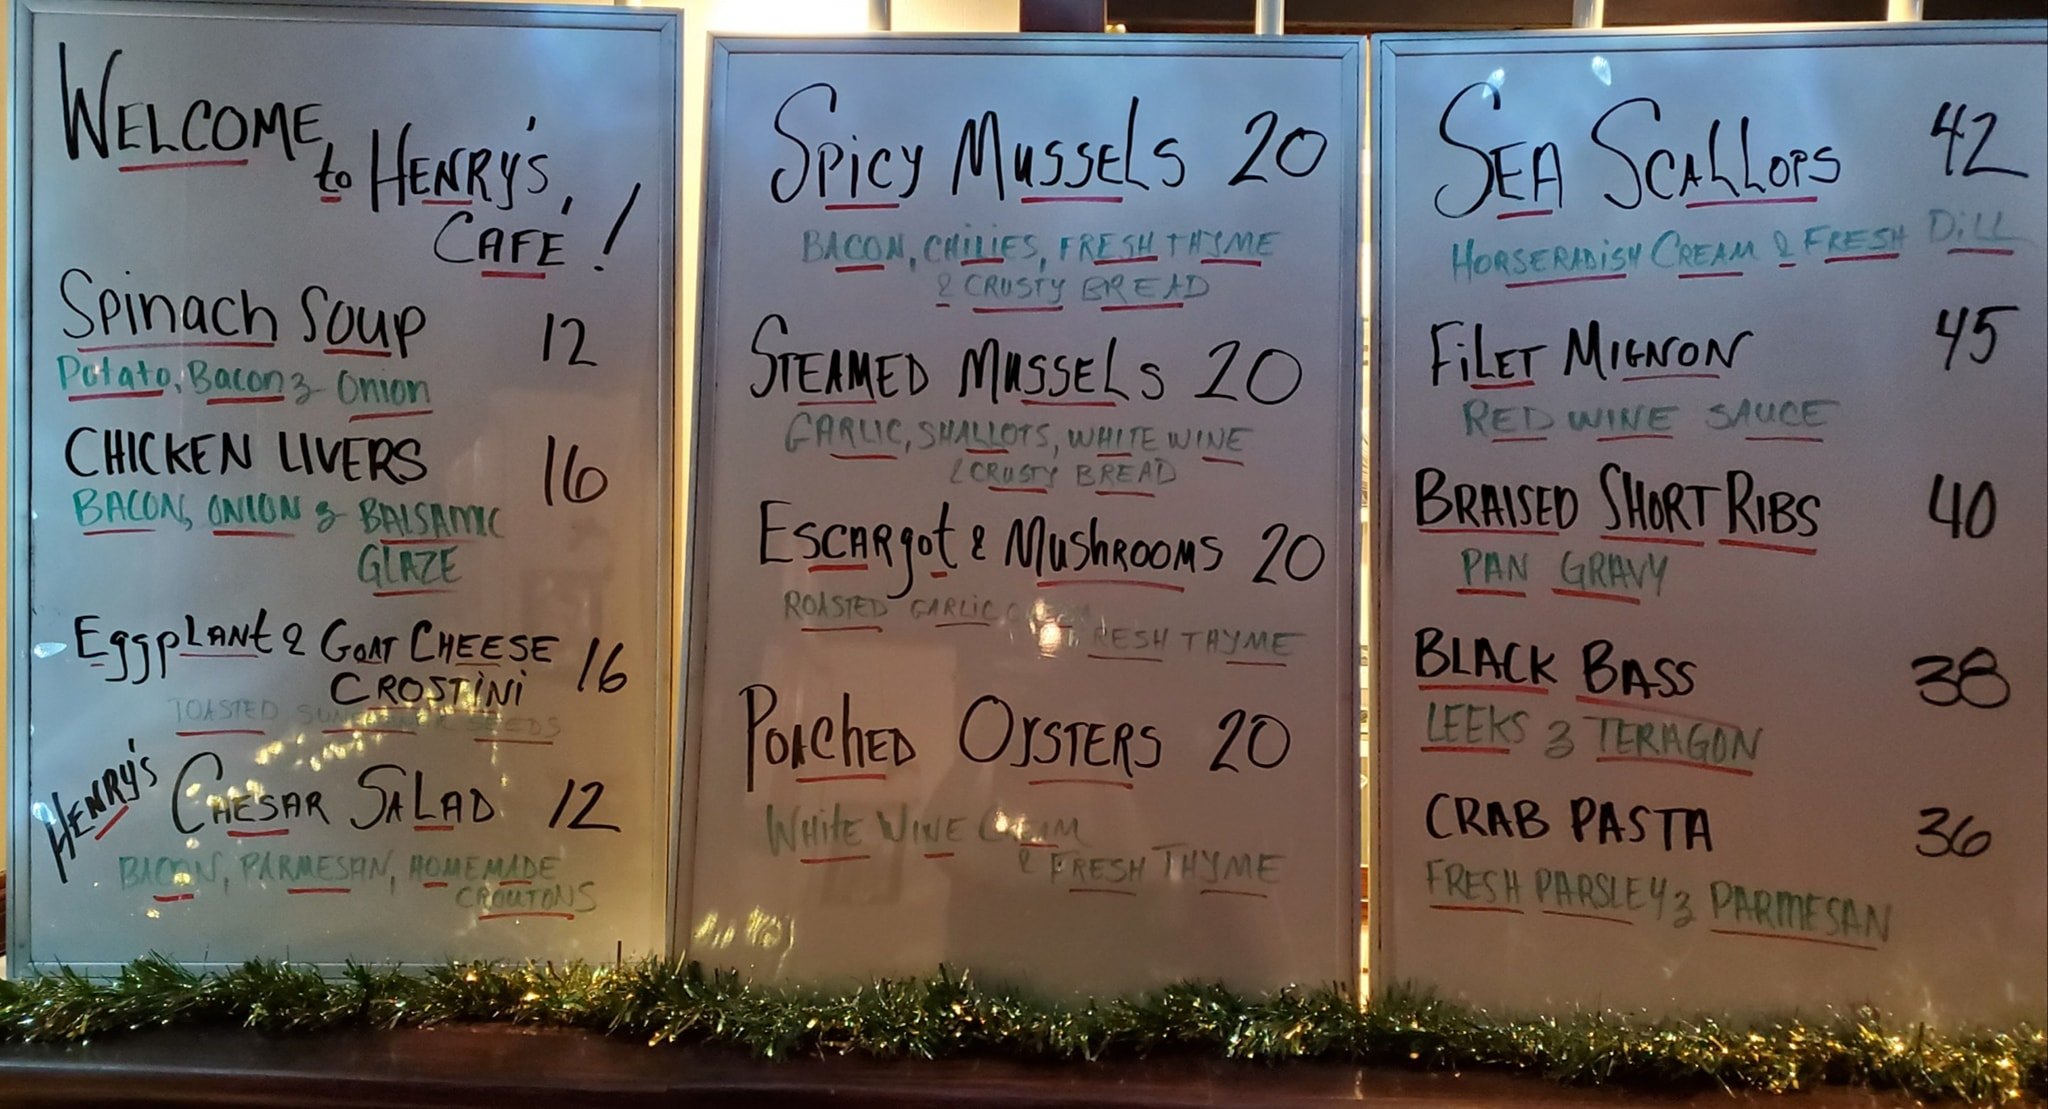 WELCOME
to HENRY'S,
CAFE!
Spinach Soup 12
Potato, Bacon & Onion
CHICKEN LIVERS 16
BACON, ONION & BALSAMIC
GLAZE
EggpLANt & GOAT CHEESE 16
CROSTINI
TOASTED SUNFLOWER SEEDS
HENRY'S CAESAR SALAD 12
BACON, PARMESAN, HOMEMADE
CROUTONS
SPICY MUSSELS 20
BACON, CHILIES, FRESH THYME
& CRUSTY BREAD
STEAMED MUSSELS 20
GARLIC, SHALLOTS, WHITE WINE
& CRUSTY BREAD
ESCARgOt & MUSHROOMS 20
ROASTED GARLIC CREAM
FRESH THYME
POACHED OYSTERS 20
WHITE WINE CREAM
& FRESH THYME
SEA SCALLOPS 42
HORSERADISH CREAM & FRESH DILL
FILET MIGNON 45
RED WINE SAUCE
BRAISED SHORT RIBS 40
PAN GRAVY
BLACK BASS 38
LEEKS & TERAGON
CRAB PASTA 36
FRESH PARSLEY & PARMESAN